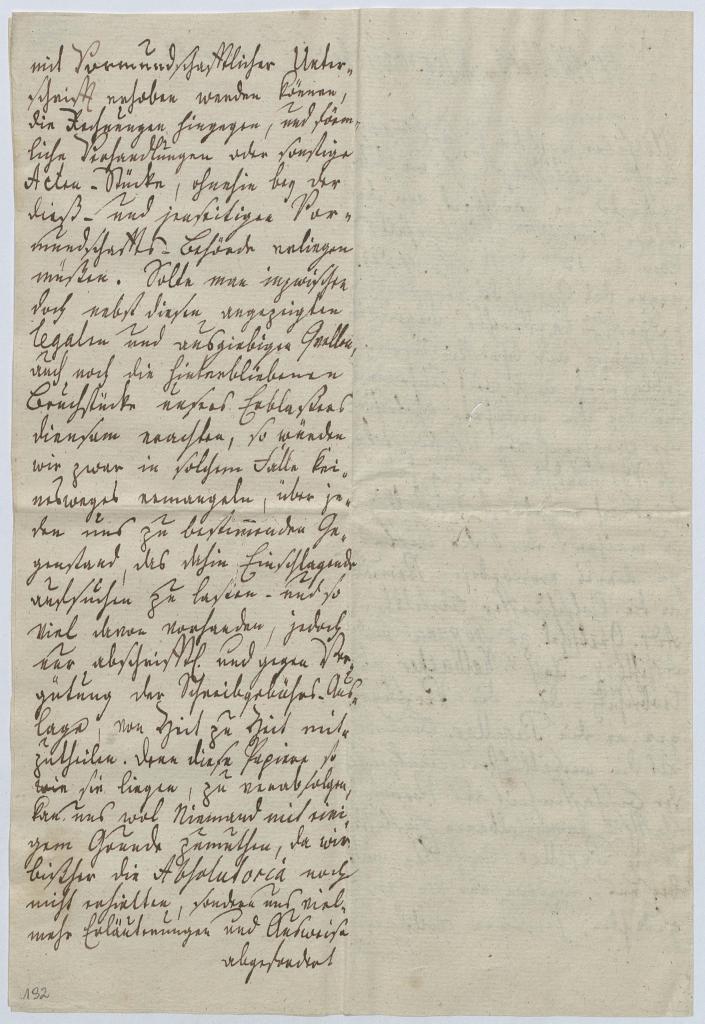 mit Vormundschafftlicher Unter-
schrifft erhoben werden können,
die Rechnungen hingegen, und förm-
liche Verhandlungen oder sonstige
Acten-Stücke, ohnehin bey der
dieß- und jenseitigen Vor-
mundschaffts-Behörde erliegen
müßen. Solte man inzwischen
doch nebst diesen angezeigten
legalen und ausgiebigen Quellen,
auch noch die hinterbliebenen
Bruchstücke unsers Erblaßers
diensam erachten, so würden
wir zwar in solchem Falle kei-
nesweges ermangeln, über je-
den uns zu bestimmenden Ge-
genstand, das dahin Einschlagende
aufsuchen zu laßen - und so
viel davon vorhanden, jedoch
nur abschrifftl. und gegen Ver-
gütung der Schreibgebührs-Aus-
lage, von Zeit zu Zeit mit-
zutheilen. Denn diese Papiere so
wie sie liegen, zu verabfolgen,
kan uns wol Niemand mit eini-
gem Grunde zumuthen, da wir
bißher die Absolutoria noch
nicht erhielten, sondern uns viel-
mehr Erläuterungen und Ausweise
abgefordert
192